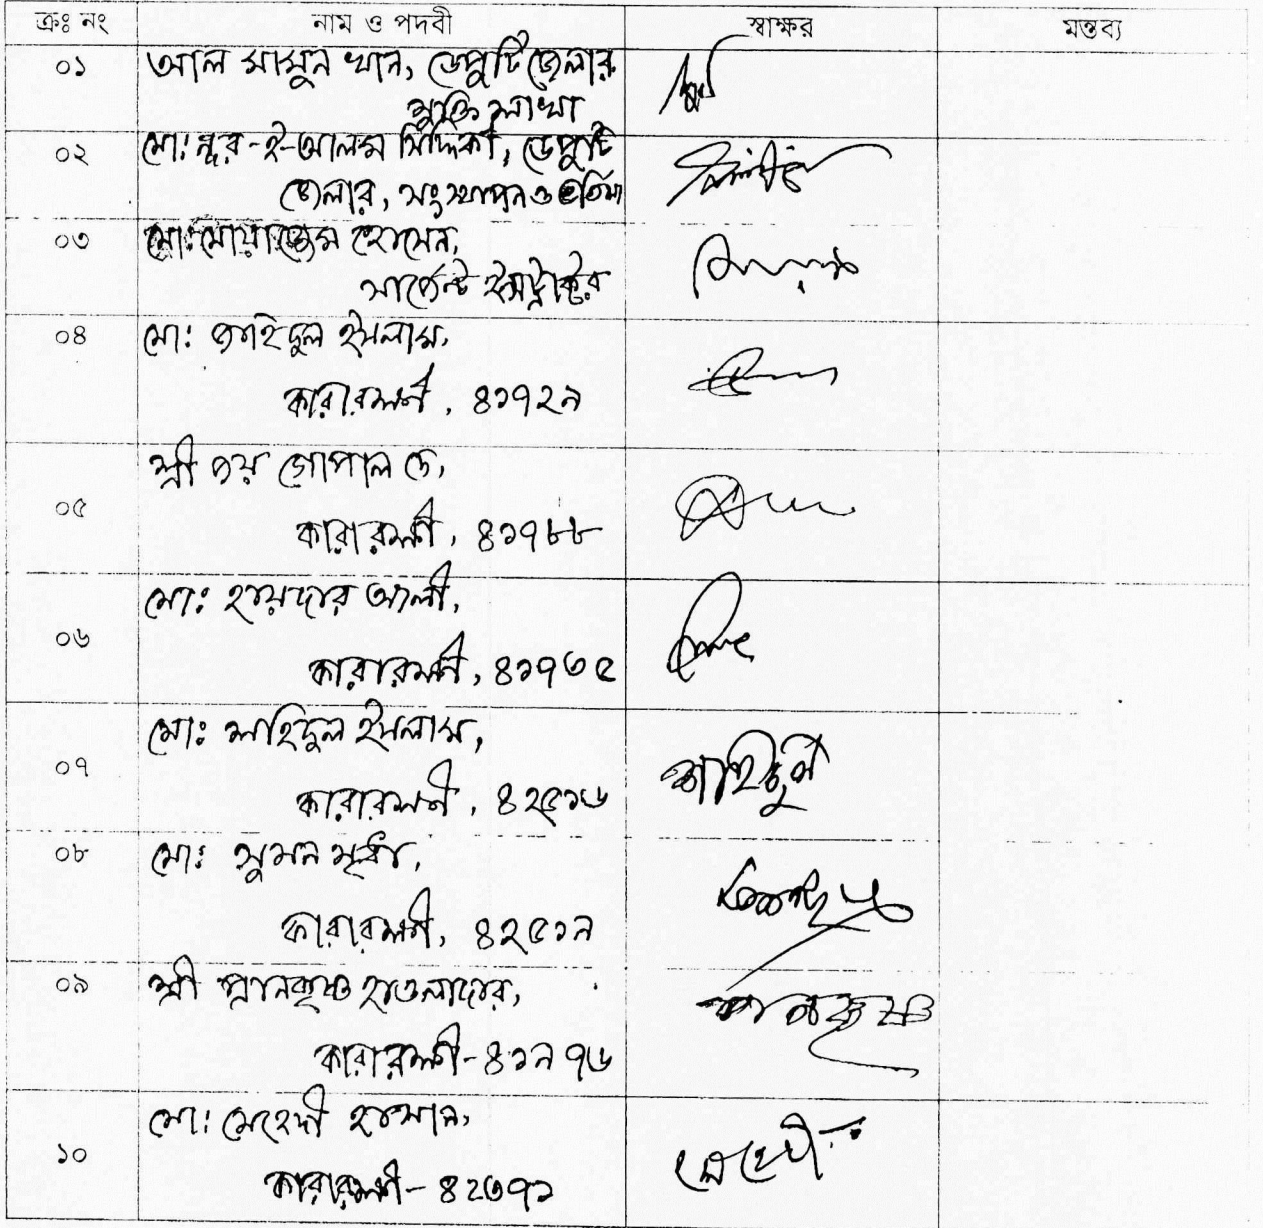 ক্রঃ নং নাম ও পদবী স্বাক্ষর মন্তব্য
০১ আল মামুন খান, ডেপুটি জেলার
মুক্তি শাখা
০২ মোঃ নুর-ই-আলম সিদ্দিকী, ডেপুটি
জেলার, সংস্থাপন ও
০৩ মোঃ মোয়াজ্জেম হোসেন,
সার্জেন্ট ইন্সট্রাক্টর
০৪ মোঃ জাহিদুল ইসলাম,
কারারক্ষী, ৪১৭২৯
শ্রী জয় গোপাল দে,
০৫ কারারক্ষী, ৪১৭৮৮
মোঃ হায়দার আলী,
০৬ কারারক্ষী, ৪১৭৩৫
মোঃ শাহিদুল ইসলাম,
০৭ কারারক্ষী, ৪২৫১৬ শাহিদুল
০৮ মোঃ সুমন মৃধা,
কারারক্ষী, ৪২৫১৯
০৯ শ্রী প্রানকৃষ্ণ হাওলাদার, প্রানকৃষ্ণ
কারারক্ষী-৪১৯৭৬
মোঃ মেহেদী হাসান,
১০ কারারক্ষী-৪২৩৭১ মেহেদী